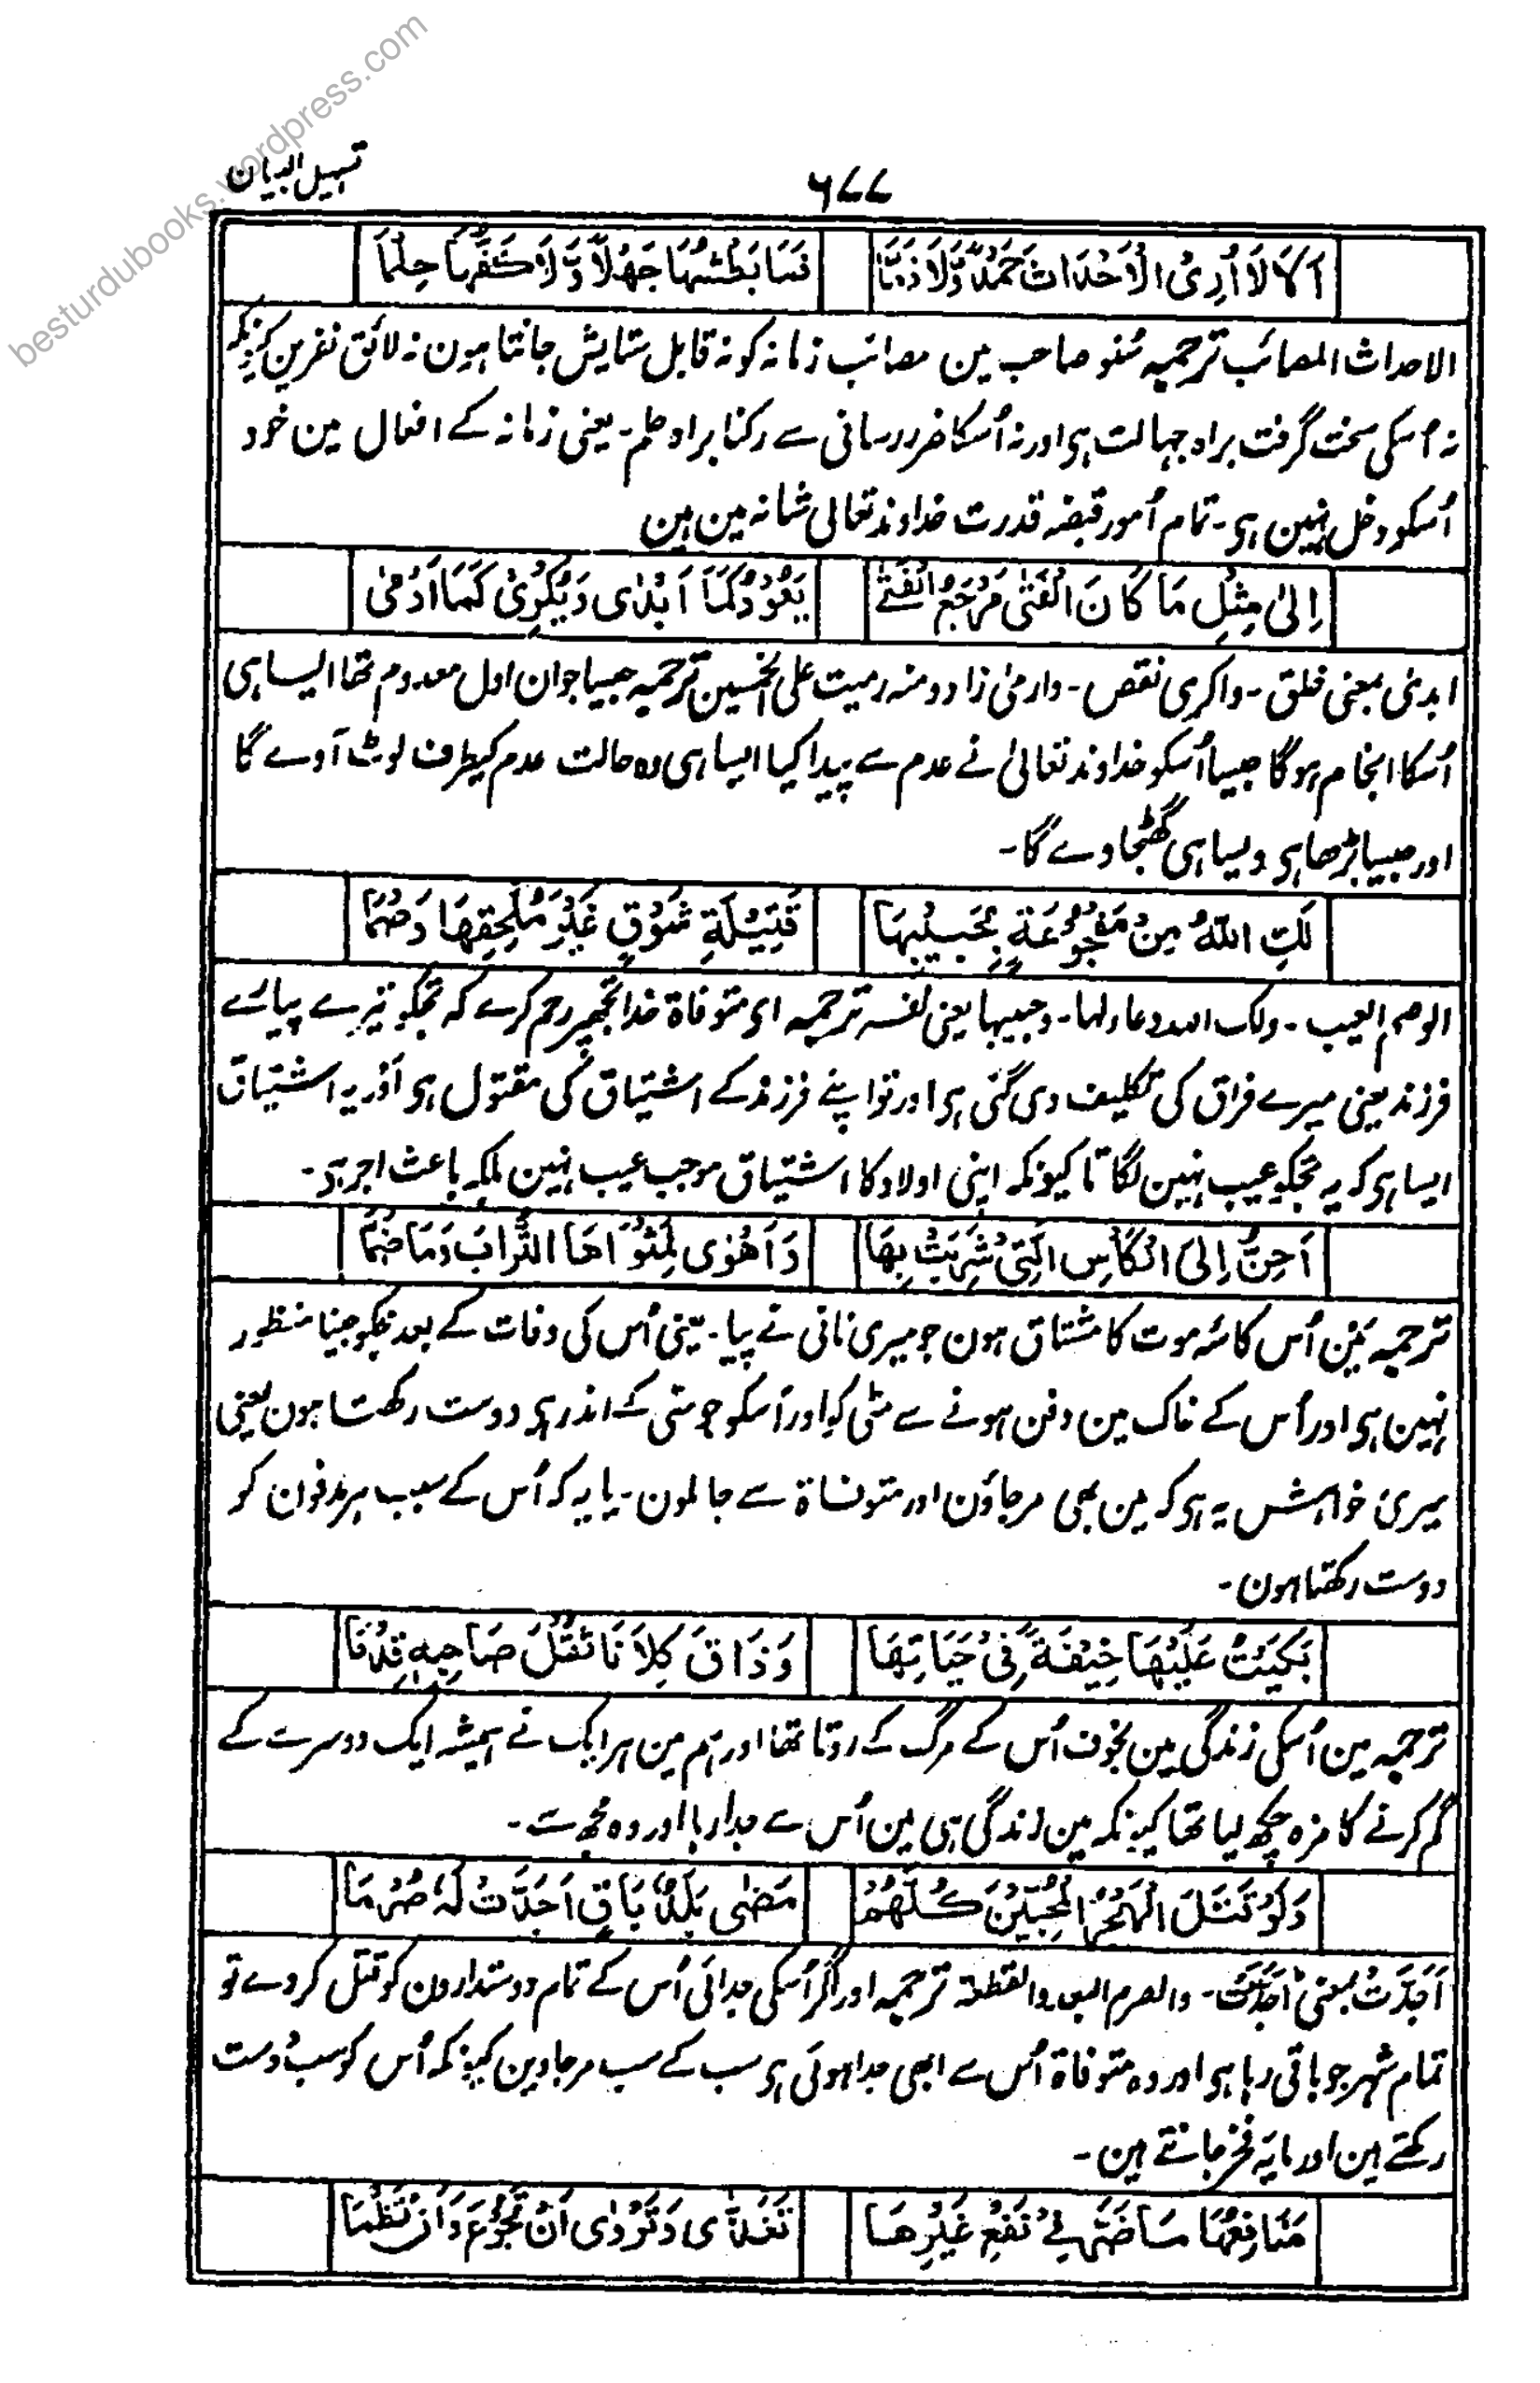 besturdubooks.wordpress.com
تسہیل البیان
۶۷۷
اَلَا لَا اُرِی الْاَحْدَاثَ حَمْدًا وَّلَا ذَمَّا فَمَا بَطْشُہَا جَهْلًا وَّلَا كَفُّہَا حِلْمَا
الاحداث المصائب ترجمہ سُنو صاحب مین مصائب زمانہ کو نہ قابل ستایش جانتا ہون نہ لائق نفرین کیونکہ
نہ اسکی سخت گرفت براہ جہالت ہی اور نہ اُسکا ضرر رسانی سے رکنا براہ حلم۔ یعنی زمانہ کے افعال مین خود
اُسکو دخل نہین ہی۔ تمام اُمور قبضہ قدرت خداوند تعالی شانہ مین ہین
اِلیٰ مِثْلِ مَا كَانَ الْفَتٰی مَرْجَعُ الْفَتٰی يَعُوْدُ كَمَا اَبْدٰی وَيُكْرِیْ كَمَا اَرْمٰی
ابدی بمعنی خلق۔ واکری نقص۔ وارمی زاد ومنہ رمیت علی الخمسین ترجمہ جیسا جوان اول معدوم تھا ایسا ہی
اُسکا انجام ہوگا جیسا اُسکو خداوند تعالیٰ نے عدم سے پیدا کیا ایسا ہی وہ حالت عدم کیطرف لوٹ آوے گا
اور جیسا بڑھا ہی ویسا ہی گھٹجاوے گا۔
لَكِ اللّٰهُ مِنْ مَفْجُوْعَةٍ بِحَبِيْبِهَا قَتِيْلَةِ شَوْقٍ غَيْرِ مُلْحِقِهَا وَصْمَا
الوصم العیب۔ ولک اللہ دعاء لہا۔ وحبیبہا یعنی نفسہ ترجمہ ای متوفاۃ خدا تجھپر رحم کرے کہ تجکو تیرے پیارے
فرزند یعنی میرے فراق کی تکلیف دی گئی ہی اور تو اپنے فرزند کے اشتیاق کی مقتول ہی اور یہ اشتیاق
ایسا ہی کہ یہ تجکو عیب نہین لگاتا کیونکہ اپنی اولاد کا اشتیاق موجب عیب نہین بلکہ باعث اجر ہی۔
اَحِنُّ اِلَی الْكَاْسِ الَّتِیْ شَرِبَتْ بِهَا وَاَهْوٰی لِمَثْوَاهَا التُّرَابَ وَمَا ضَمَّا
ترجمہ مَین اُس کاسۂ موت کا مشتاق ہون جو میری نانی نے پیا۔ یعنی اُس کی وفات کے بعد مجکو جینا منظور
نہین ہی اور اُس کے خاک مین دفن ہونے سے مٹی کو اور اُسکو جو مٹی کے اندر ہی دوست رکھتا ہون یعنی
میری خواہش یہ ہی کہ مین بھی مرجاؤن اور متوفاۃ سے جا ملون۔ یا یہ کہ اُس کے سبب ہر مدفون کو
دوست رکھتا ہون۔
بَكَيْتُ عَلَيْهَا خِيْفَةً فِیْ حَيَاتِهَا وَذَاقَ كِلَانَا ثُكْلَ صَاحِبِهٖ قِدْمَا
ترجمہ مین اُسکی زندگی مین بخوف اُس کے مرگ کے روتا تھا اور ہم مین ہر ایک نے ہمیشہ ایک دوسرے کے
گم کرنے کا مزہ چکھ لیا تھا کیونکہ مین زندگی ہی مین اُس سے جدا رہا اور وہ مجھ سے۔
وَلَوْ قَتَلَ الْهَجْرُ الْمُحِبِّيْنَ كُلَّهُمْ مَضٰی بَلَدٌ بَاقٍ اَجَدَّتْ لَهٗ صَرْمَا
اَجَدَّتْ بمعنی اَحْدَثَتْ۔ والصرم البعد والقطعۃ ترجمہ اور اگر اُسکی جدائی اُس کے تمام دوستدارون کو قتل کردے تو
تمام شہر جو باقی رہا ہی اور وہ متوفاۃ اُس سے ابھی جدا ہوئی ہی سب کے سب مرجاوین کیونکہ اُس کو سب دوست
رکھتے ہین اور مایۂ فخر جانتے ہین۔
مَنَافِعُهَا مَا ضَرَّ فِیْ نَفْعِ غَيْرِهَا تَغَذّٰی وَتَرْوٰی اَنْ تَجُوْعَ وَاَنْ تَظْمَا